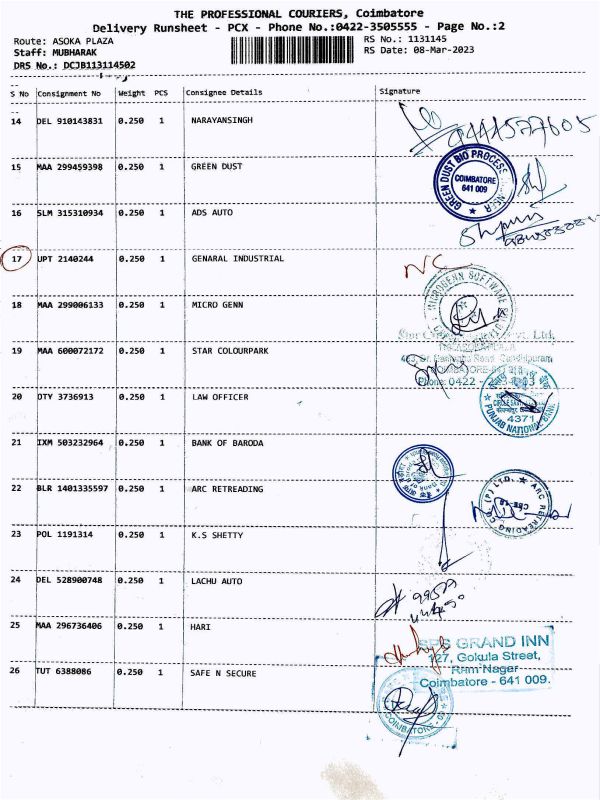 THE PROFESSIONAL COURIERS, Coimbatore
Delivery Runsheet - PCX - Phone No.:0422-3505555 - Page No.:2
Route: ASOKA PLAZA
Staff: MUBHARAK
DRS No.: DCJB113114502
RS No.: 1131145
RS Date: 08-Mar-2023
S No Consignment No Weight PCS Consignee Details Signature
14 DEL 910143831 0.250 1 NARAYANSINGH
15 MAA 299459398 0.250 1 GREEN DUST
GREEN DUST BIO PROCESS
COIMBATORE
641 009
16 SLM 315310934 0.250 1 ADS AUTO
17 UPT 2140244 0.250 1 GENARAL INDUSTRIAL
NC
18 MAA 299006133 0.250 1 MICRO GENN
MICROGENN SOFTWARE
19 MAA 600072172 0.250 1 STAR COLOURPARK
Phone: 0422 -
20 OTY 3736913 0.250 1 LAW OFFICER
4371
PUNJAB NATIONAL BANK
21 IXM 503232964 0.250 1 BANK OF BARODA
22 BLR 1401335597 0.250 1 ARC RETREADING
ARC RETREADING CO (P) LTD.
CBE-18
23 POL 1191314 0.250 1 K.S SHETTY
24 DEL 528900748 0.250 1 LACHU AUTO
25 MAA 296736406 0.250 1 HARI
GRAND INN
127, Gokula Street,
Ram Nagar
Coimbatore - 641 009.
26 TUT 6388086 0.250 1 SAFE N SECURE
COIMBATORE